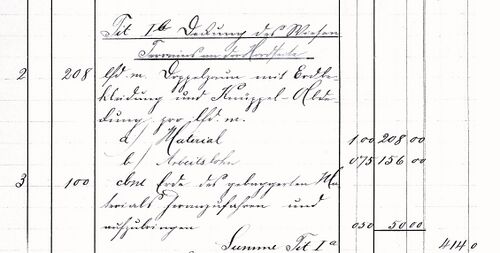 Tit Ib Deckung des Wiesen
Terrains an der Nordseite
2 208 lfd. m. Doppelzaun mit Erdbe-
kleidung und Knüppel-Abde-
ckung pro lfd. m.
a/ Material 1 00 208 00
b/ Arbeitslohn 0 75 156 00
3 100 cbm Erde des gebaggerten Ma-
terials heranzufahren und
aufzubringen 0 50 50 00
Summe Tit Ia 414 0